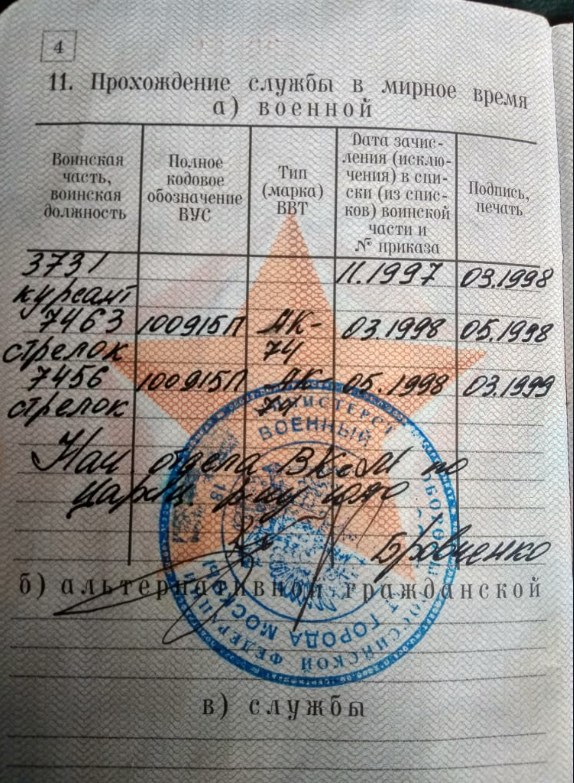 4
11. Прохождение службы в мирное время
а) военной
Воинская часть, воинская должность
Полное кодовое обозначение ВУС
Тип (марка) ВВТ
Дата зачис-
ления (исклю-
чения) в спи-
ски (из спис-
ков) воинской
части и
№ приказа
Подпись, печать
3731 11.1997 03.1998
курсант
7463 100915П АК- 03.1998 05.1998
стрелок 74
7456 100915П АК- 05.1998 03.1999
стрелок 74
Нач отдела ВКгМ по
ЮАО
Бровченко
б) альтернативной гражданской
в) службы
ВОЕННЫЙ
ГОРОДА МОСКВЫ
РОССИЙСКОЙ ФЕДЕРАЦИИ